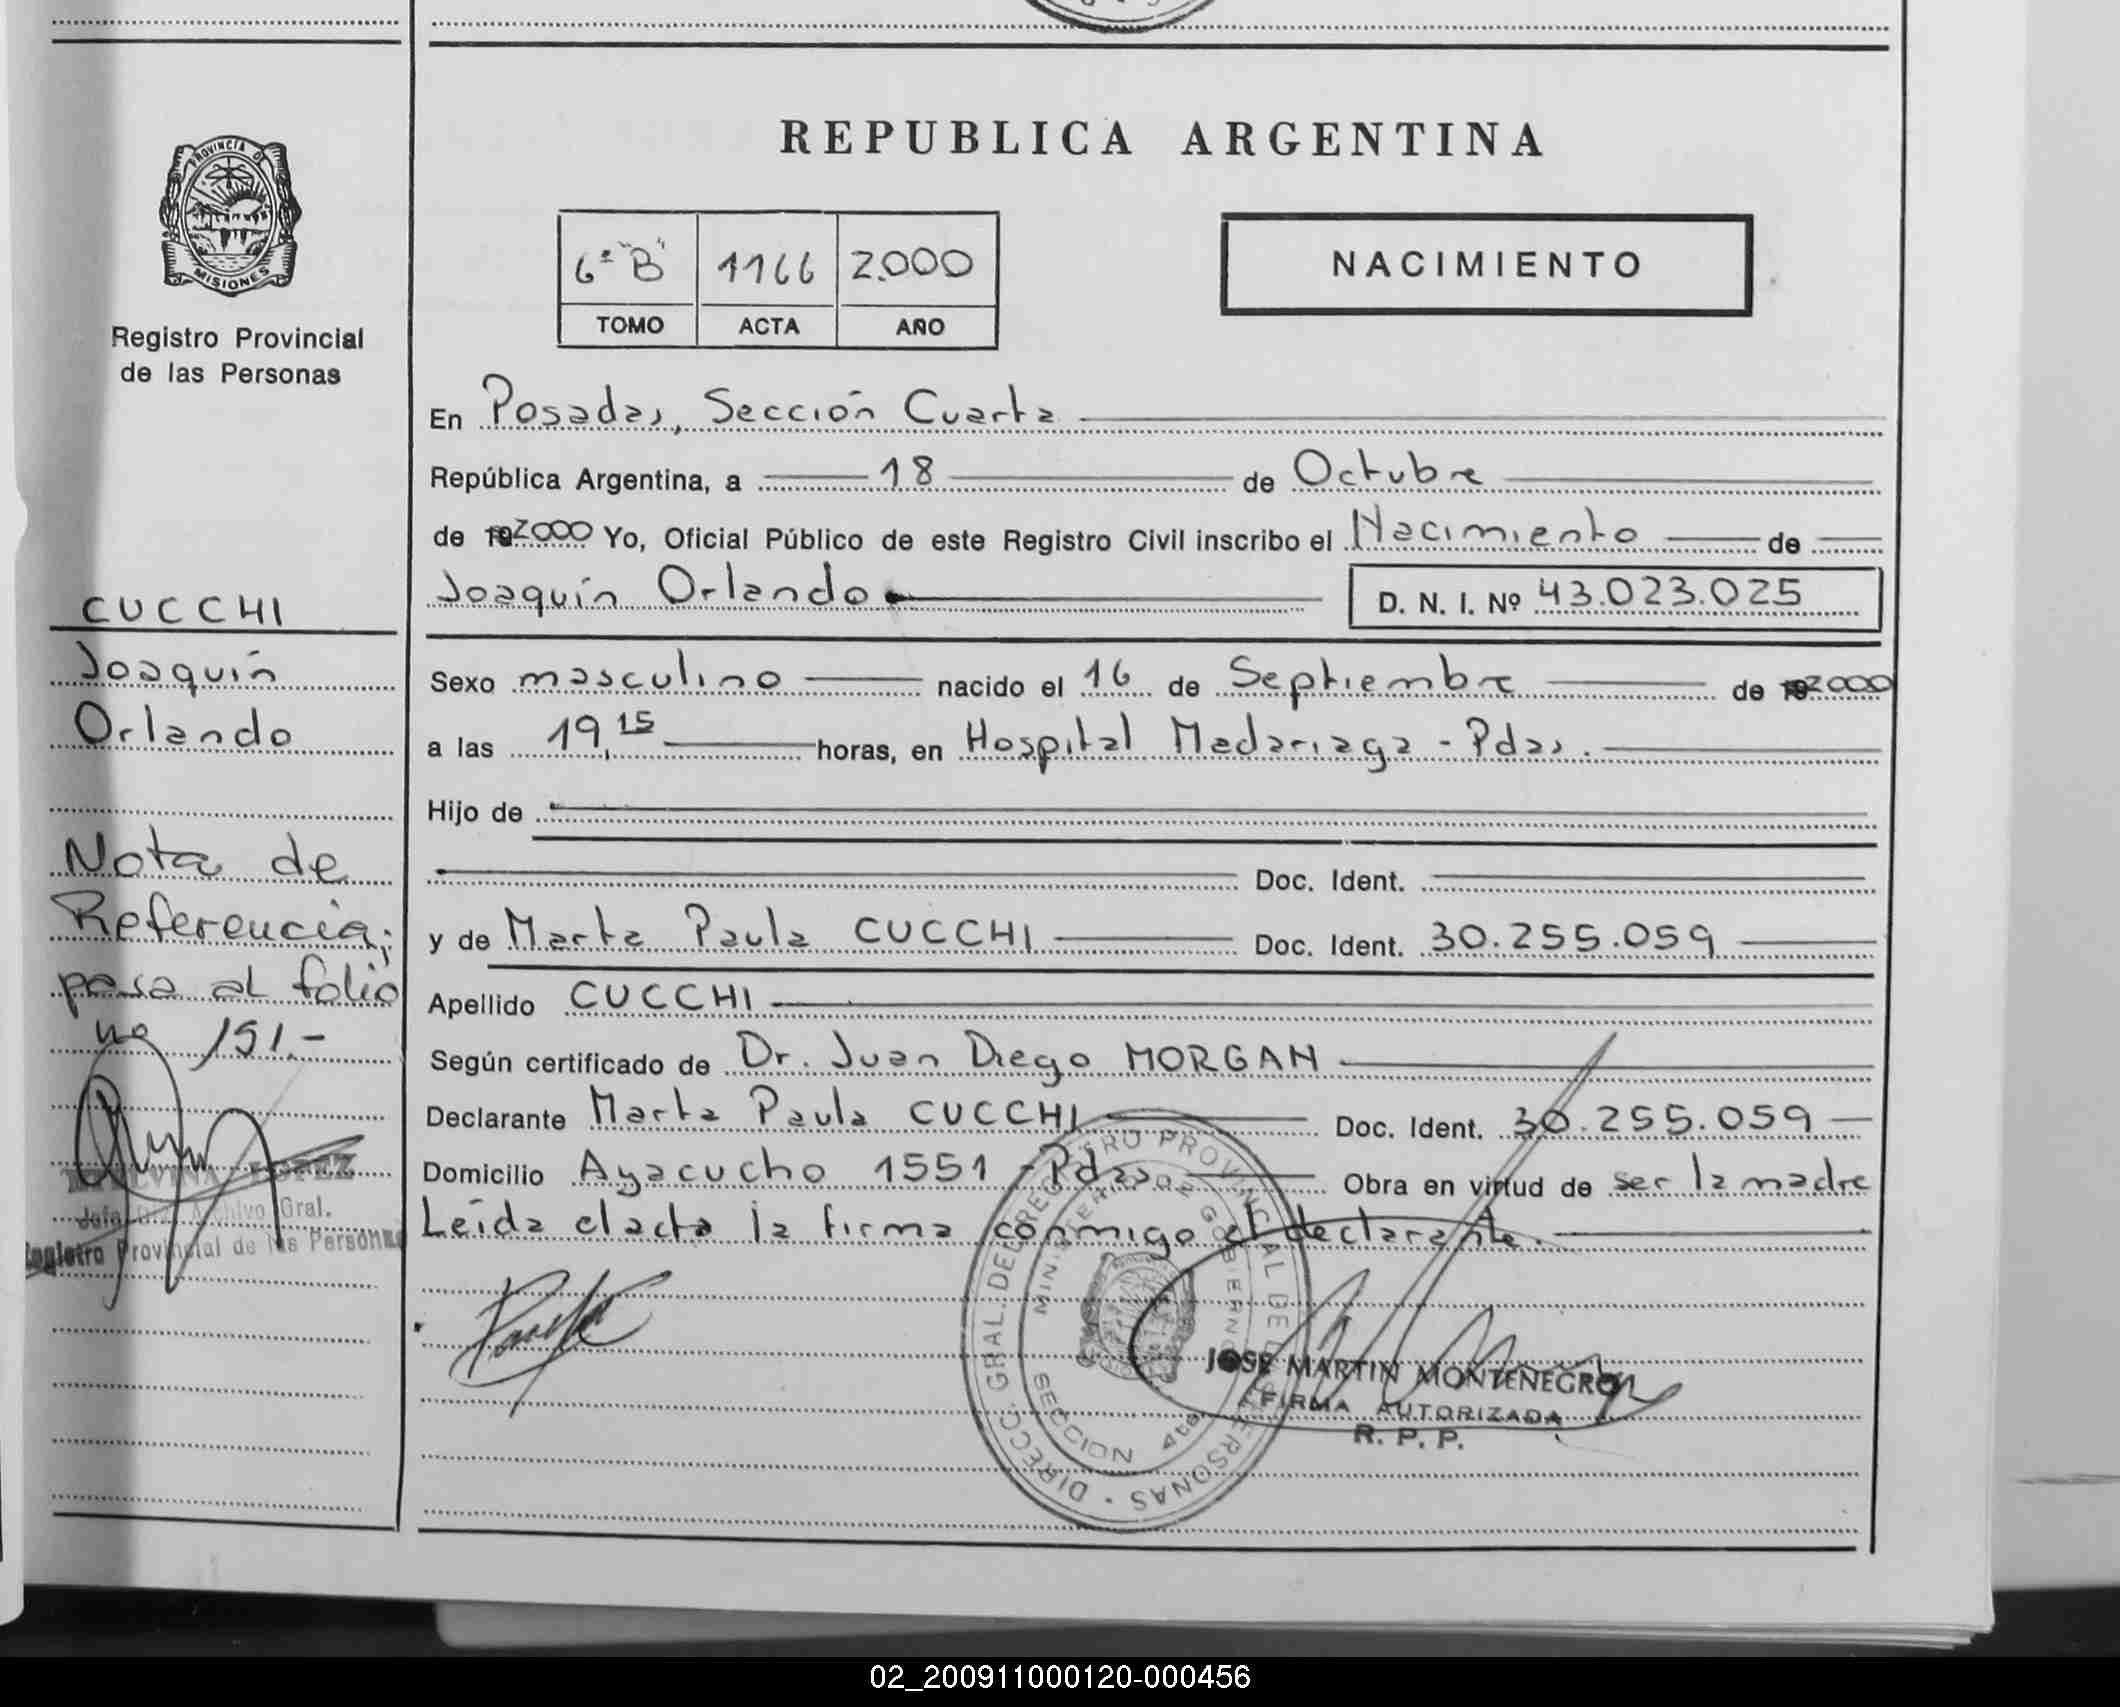 REPUBLICA ARGENTINA
PROVINCIA D
MISIONES
Registro Provincial
de las Personas
6ª "B" 1166 2.000
TOMO ACTA AÑO
NACIMIENTO
En Posadas, Sección Cuarta
República Argentina, a 18 de Octubre
de 192000 Yo, Oficial Público de este Registro Civil inscribo el Nacimiento de
Joaquín Orlando D. N. I. Nº 43.023.025
Sexo masculino nacido el 16 de Septiembre de 192000
a las 19,15 horas, en Hospital Madariaga - Pdas.
Hijo de
Doc. Ident.
y de Marta Paula CUCCHI Doc. Ident. 30.255.059
Apellido CUCCHI
Según certificado de Dr. Juan Diego MORGAN
Declarante Marta Paula CUCCHI Doc. Ident. 30.255.059
Domicilio Ayacucho 1551 - Pdas Obra en virtud de ser la madre
Leída el acta la firma conmigo el declarante.
CUCCHI
Joaquín
Orlando
Nota de
Referencia;
pasa al folio
no 151.-
LOPEZ
Jefa Archivo Gral.
Registro Provincial de las Personas
DIRECC. GRAL. DEL REGISTRO PROVINCIAL DE LAS PERSONAS
MINISTERIO DE GOBIERNO
SECCION 4ta
JOSE MARTIN MONTENEGRO
FIRMA AUTORIZADA
R. P. P.
02_200911000120-000456